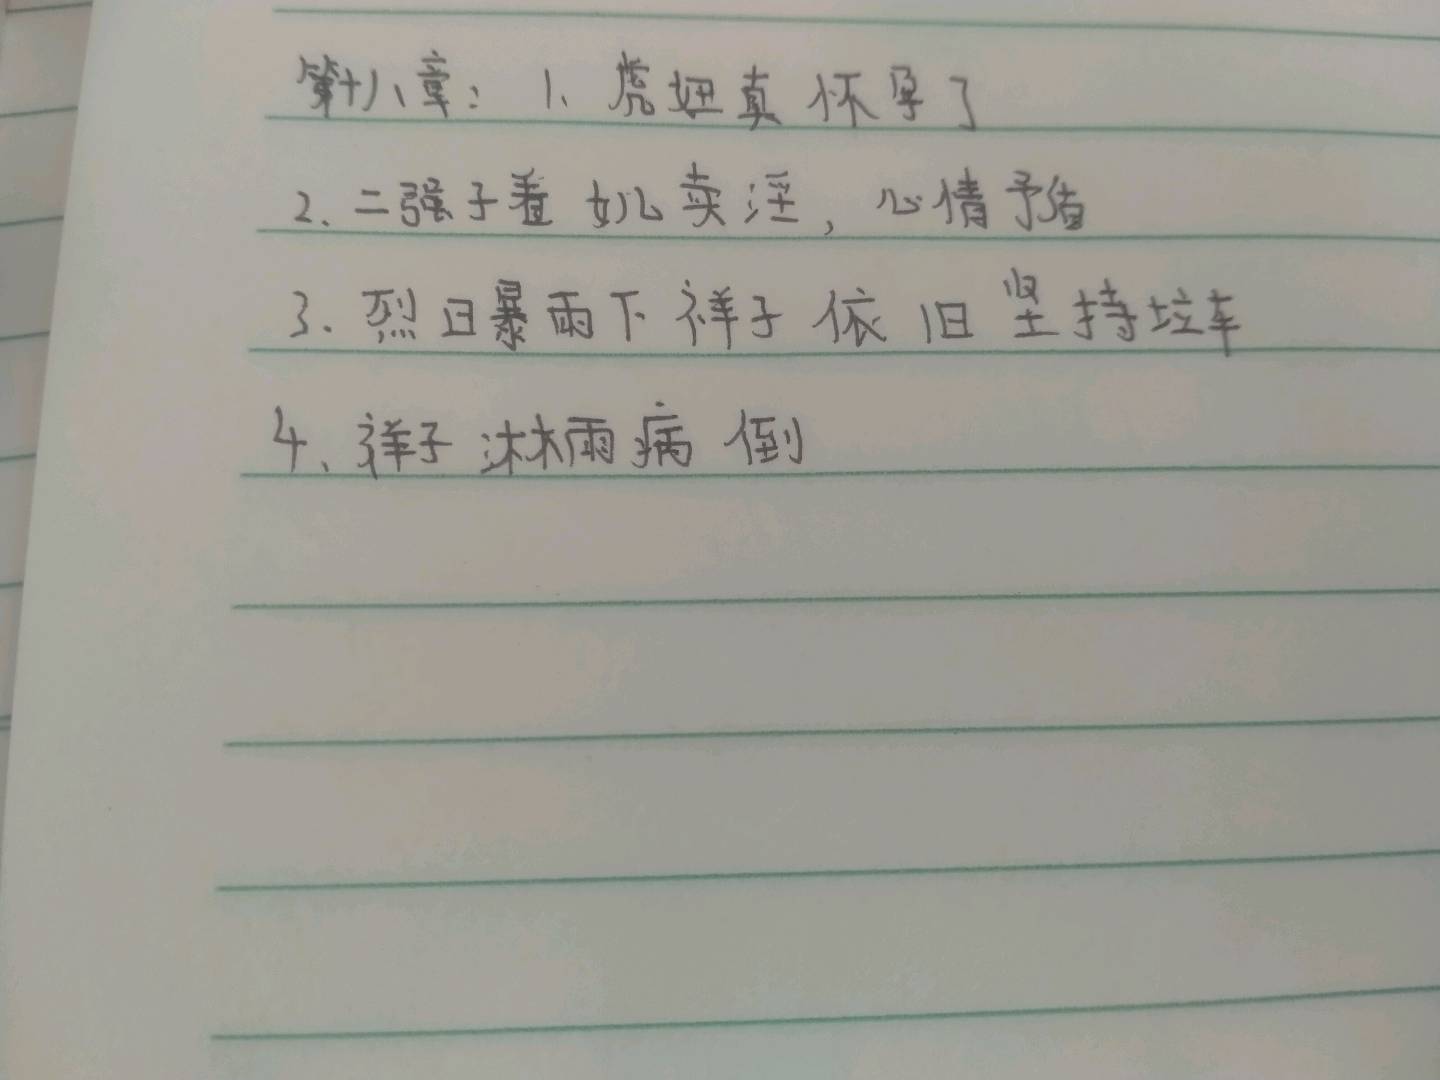 第十八章：1、虎妞真怀孕了
2、二强子看女儿卖淫，心情矛盾
3、烈日暴雨下祥子依旧坚持拉车
4、祥子淋雨病倒